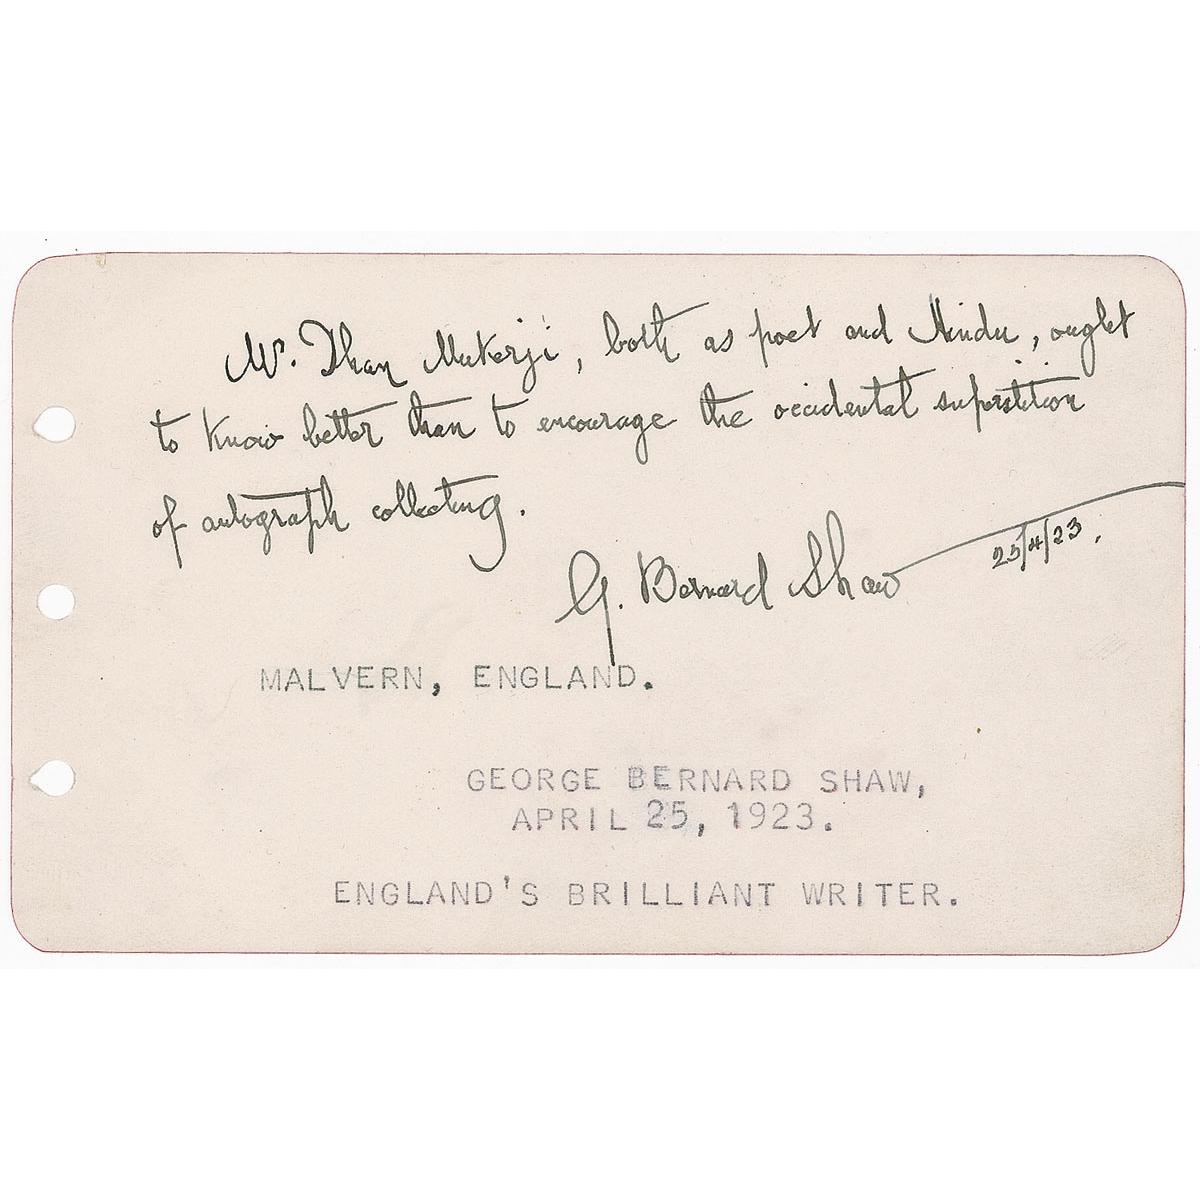 Mr. Dhan Mukerji, both as poet and Hindu, ought
to know better than to encourage the occidental superstition
of autograph collecting.
G. Bernard Shaw
25/4/23.
MALVERN, ENGLAND.
GEORGE BERNARD SHAW,
APRIL 25, 1923.
ENGLAND'S BRILLIANT WRITER.